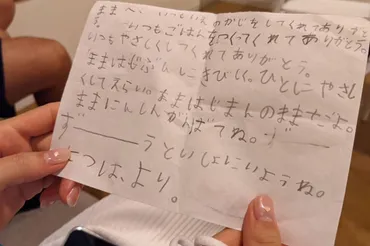 ままへ、いつもかじをしてくれてありがと
う。いつもごはんをつくってくれてありがとう。
いつもやさしくしてくれてありがとう。
ままはじぶんにきびしく。ひとにやさし
くしてえらい。ままはじまんのままだよ。
ままにんしんがばてね。ず
ず———うといしょにいようね。
より。